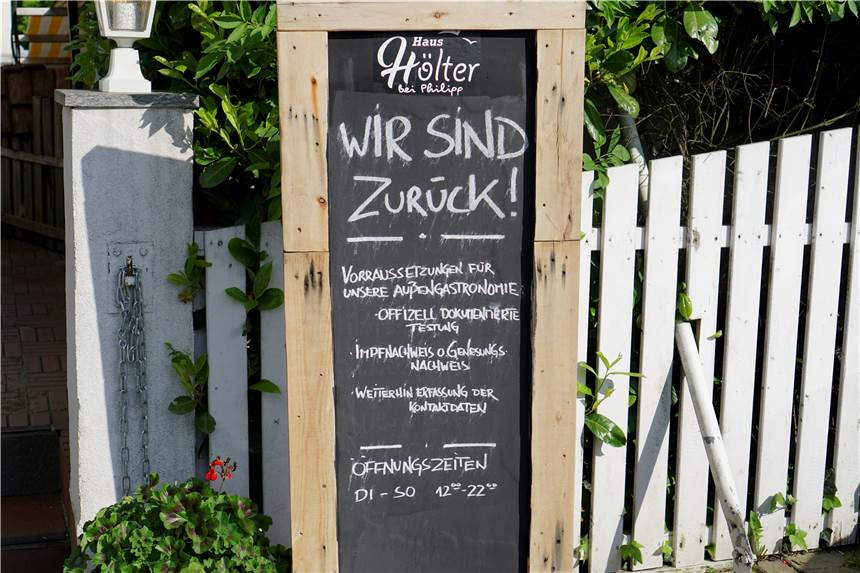 Haus
Hölter
bei Philipp
WIR SIND
ZURÜCK!
VORRAUSSETZUNGEN FÜR
UNSERE AUßENGASTRONOMIE
· OFFIZELL DOKUMENTIERTE
TESTUNG
· IMPFNACHWEIS O. GENESUNGS-
NACHWEIS
· WEITERHIN ERFASSUNG DER
KONTAKTDATEN
ÖFFNUNGSZEITEN
DI - SO 12⁰⁰-22⁰⁰